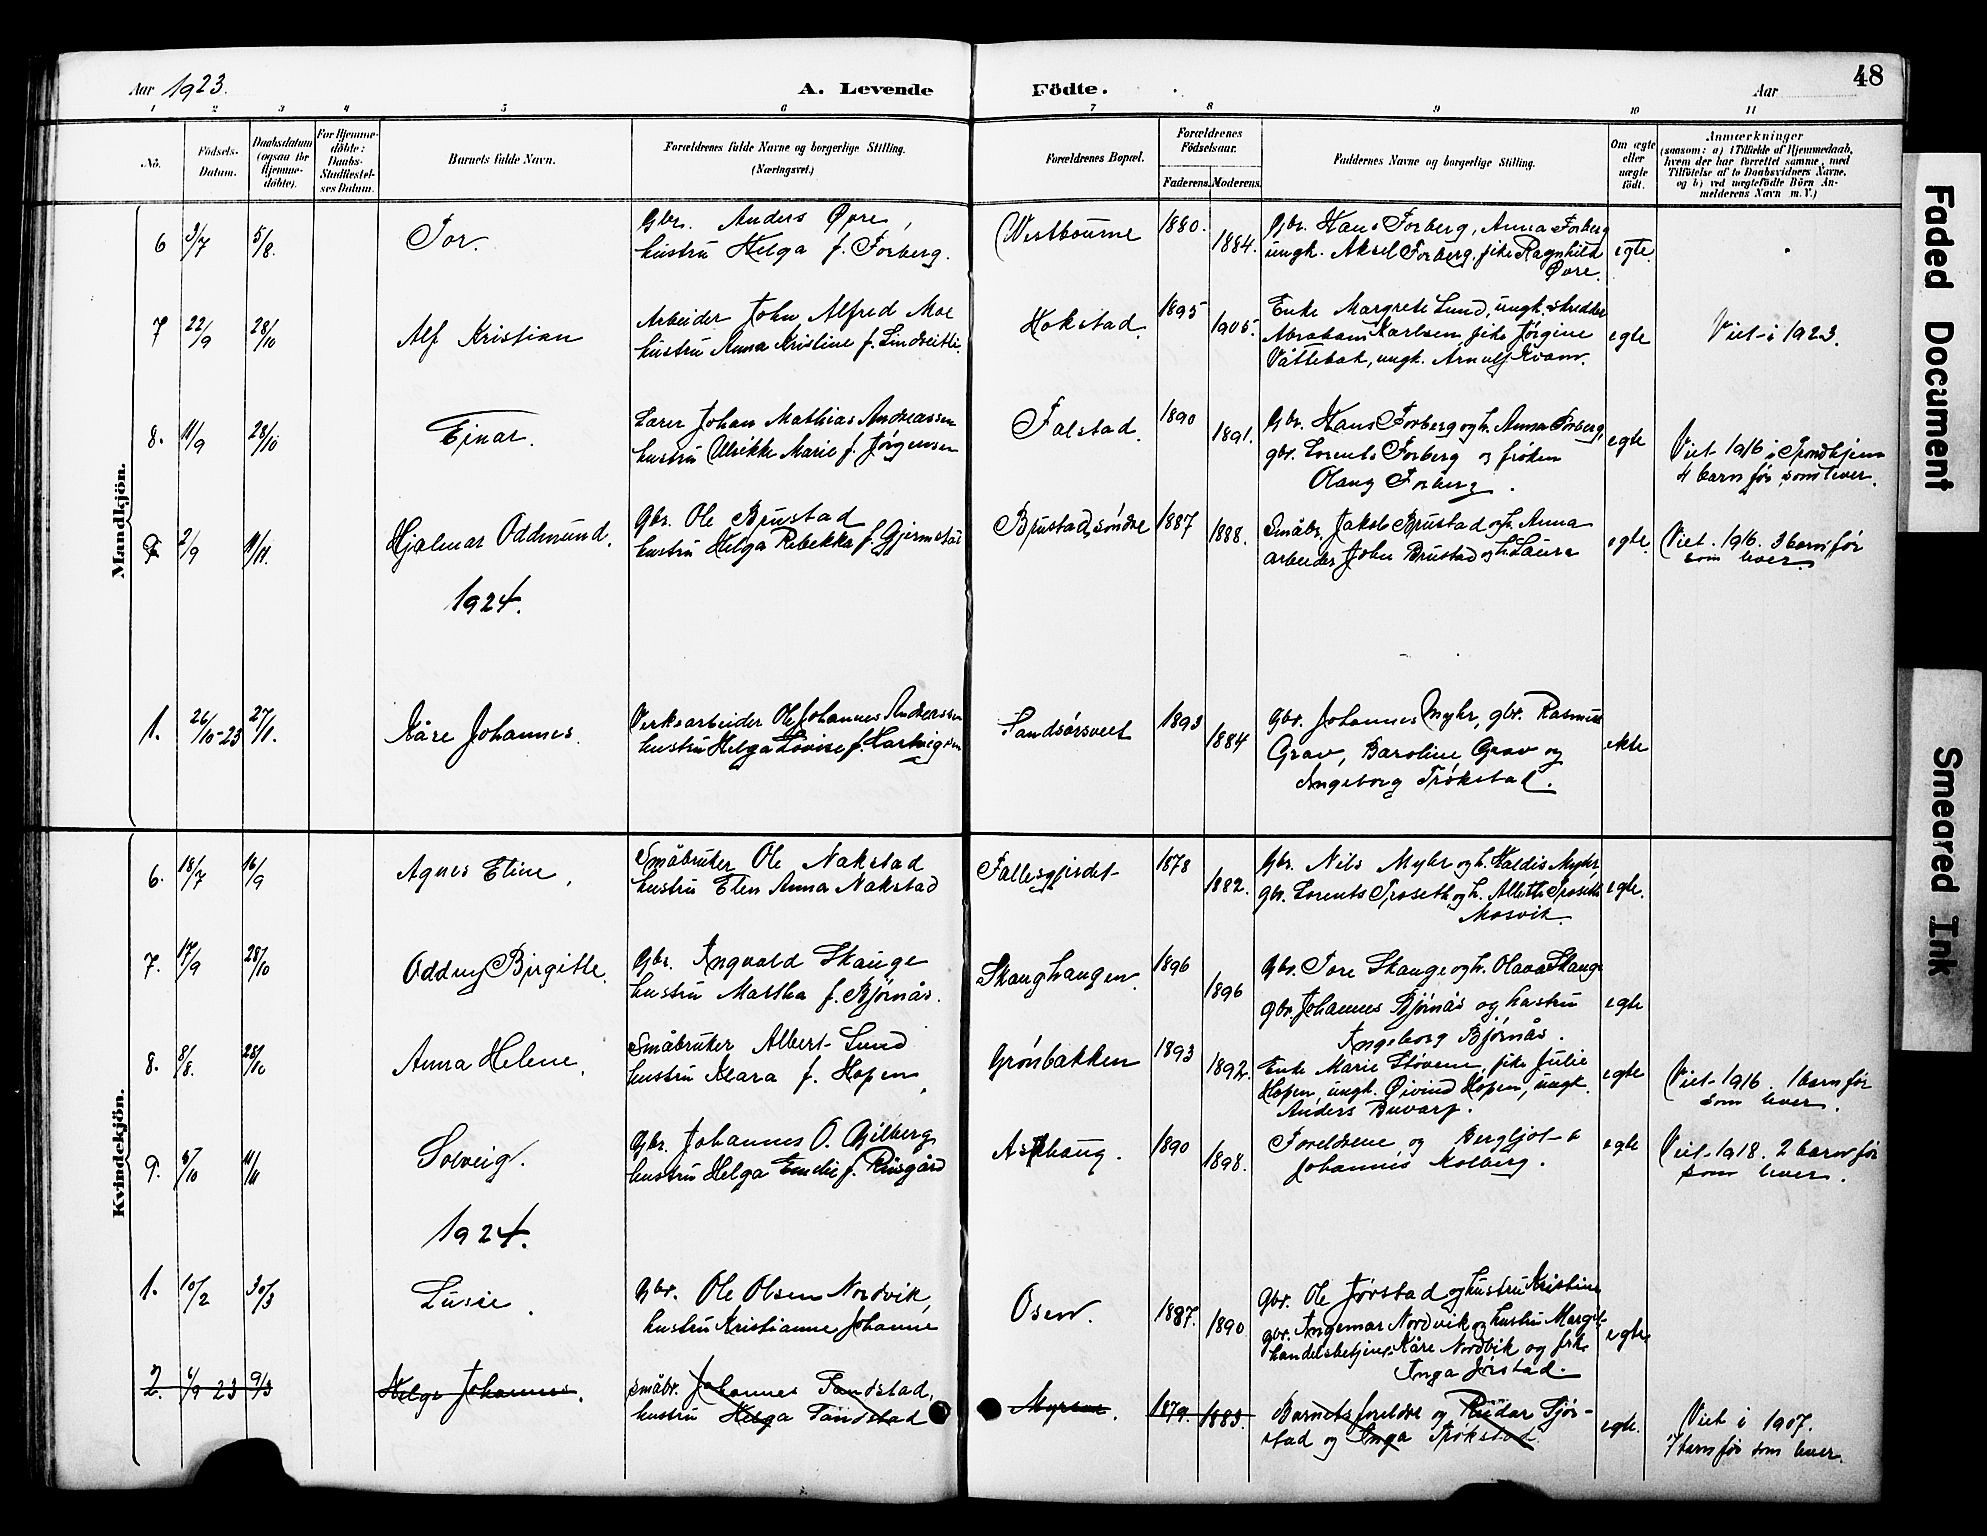 Aar 1923.
A. Levende Födte.
Aar
48
1 2 3 4 5 6 7 8 9 10 11
No.
Födsels-Datum.
Daabsdatum (ogsaa for Hjemme-döbte).
For Hjemme-döbte: Daabs-Stadfæstel-ses Datum.
Barnets fulde Navn.
Forældrenes fulde Navne og borgerlige Stilling. (Næringsvei.)
Forældrenes Bopæl.
Forældrenes Födselsaar.
Faderens. Moderens.
Faddernes Navne og borgerlige Stilling.
Om ægte eller uægte födt.
Anmærkninger (saasom: a) i Tilfælde af Hjemmedaab, hvem der har forrettet samme, med Tilföielse af to Daabsvidners Navne, og b) ved uægtefödte Börn An-melderens Navn m. V.)
Mandkjön.
6 3/7 5/8. Tor. Gbr. Anders Øvre, Westbourne 1880. 1884. Gbr. Hans Forberg, Anna Forberg egte.
hustru Helga f. Forberg. ungk. Aksel Forberg, pike Ragnhild
Øvre.
7 22/9 28/10 Alf Kristian Arbeider John Alfred Moe Hokstad. 1895 1905. Enke Margrete Lund, ungk. skredder egte Viet i 1923.
hustru Anna Kristine f. Abraham Karlsen, pike Jørgine
Våttebak, ungk. Arnulf Kvam.
8. 11/9 28/10 Einar. Lærer Johan Mathias Andreassen Falstad. 1890 1891. Gbr. Hans Forberg og h. Anna Forberg, egte Viet 1916 i Trondhjem
hustru Ulrikke Marie f. Jørgensen gbr. Lorents Forberg og frøken 4 barn før, som lever.
Olaug Forberg.
9 2/9 11/11. Hjalmar Oddmund. Gbr. Ole Brustad Brustad, søndre 1887 1888. Småbr. Jakob Brustad og h. Anna egte. Viet. 1916. 3 barn før
hustru Helga Rebekka f. Gjermstad arbeider John Brustad og h. Laura som lever.
1924.
1. 26/10-23 27/1. Kåre Johannes. Verksarbeider Ole Johannes Andreassen Sandsørsveet 1893 1884 Gbr. Johannes Myhr, gbr. Rasmus ekte
hustru Helga Lovise f. Hartvigsen Grav, Baroline Grav og
Ingeborg Trøkstad.
Kvindekjön.
6. 18/7 16/9 Agnes Eline, Småbruker Ole Nakstad Fallesgjerdet 1878 1882. Gbr. Nils Myhr og h. Haldis Myhr, egte.
hustru Elen Anna Nakstad gbr. Lorents Troseth og h. Allette Troseth
Mosvik.
7. 17/9 28/10 Oddny Birgitte. Gbr. Ingvald Skauge Skaughaugen. 1896 1896 Gbr. Tore Skauge og h. Olava Skauge egte
hustru Martha f. Bjørnås. gbr. Johannes Bjørnås og hustru
Ingeborg Bjørnås.
8. 8/8. 28/10 Anna Helene, Småbruker Albert Lund Grønbakken 1893 1892. Enke Marie Støvene, pike Julie egte Viet 1916. 1 barn før
hustru Klara f. Hopen, Hopen, ungk. Øivind Hopen, ungk. som lever.
Anders Buvarp.
9. /10 11/11 Solveig. Gbr. Johannes O. Gilberg Asphaug. 1890 1898. Foreldrene og Bergljot & egte Viet 1918. 2 barn før
hustru Helga Emelie f. Risgård Johannes Kolberg. som lever.
1924.
1. 10/2 30/3 Lusie. Gbr. Ole Olsen Nordvik, Osen. 1887. 1890 Gbr. Ole Jørstad og hustru Kristine egte
hustru Kristianne Johanne gbr. Ingemar Nordvik og hustru Marget
handelsbetjent Kåre Nordvik og frk.
Inga Jørstad.
2. /9 23 9/3 Helge Johannes. småbr. Johannes Tandstad, Myrene. 1879. 1883. Barnets foreldre og Reidar Tjør- egte. Viet i 1907.
hustru Helga Tandstad stad og Inga Trøkstad. 7 barn før som lever.
Faded Document
Smeared Ink